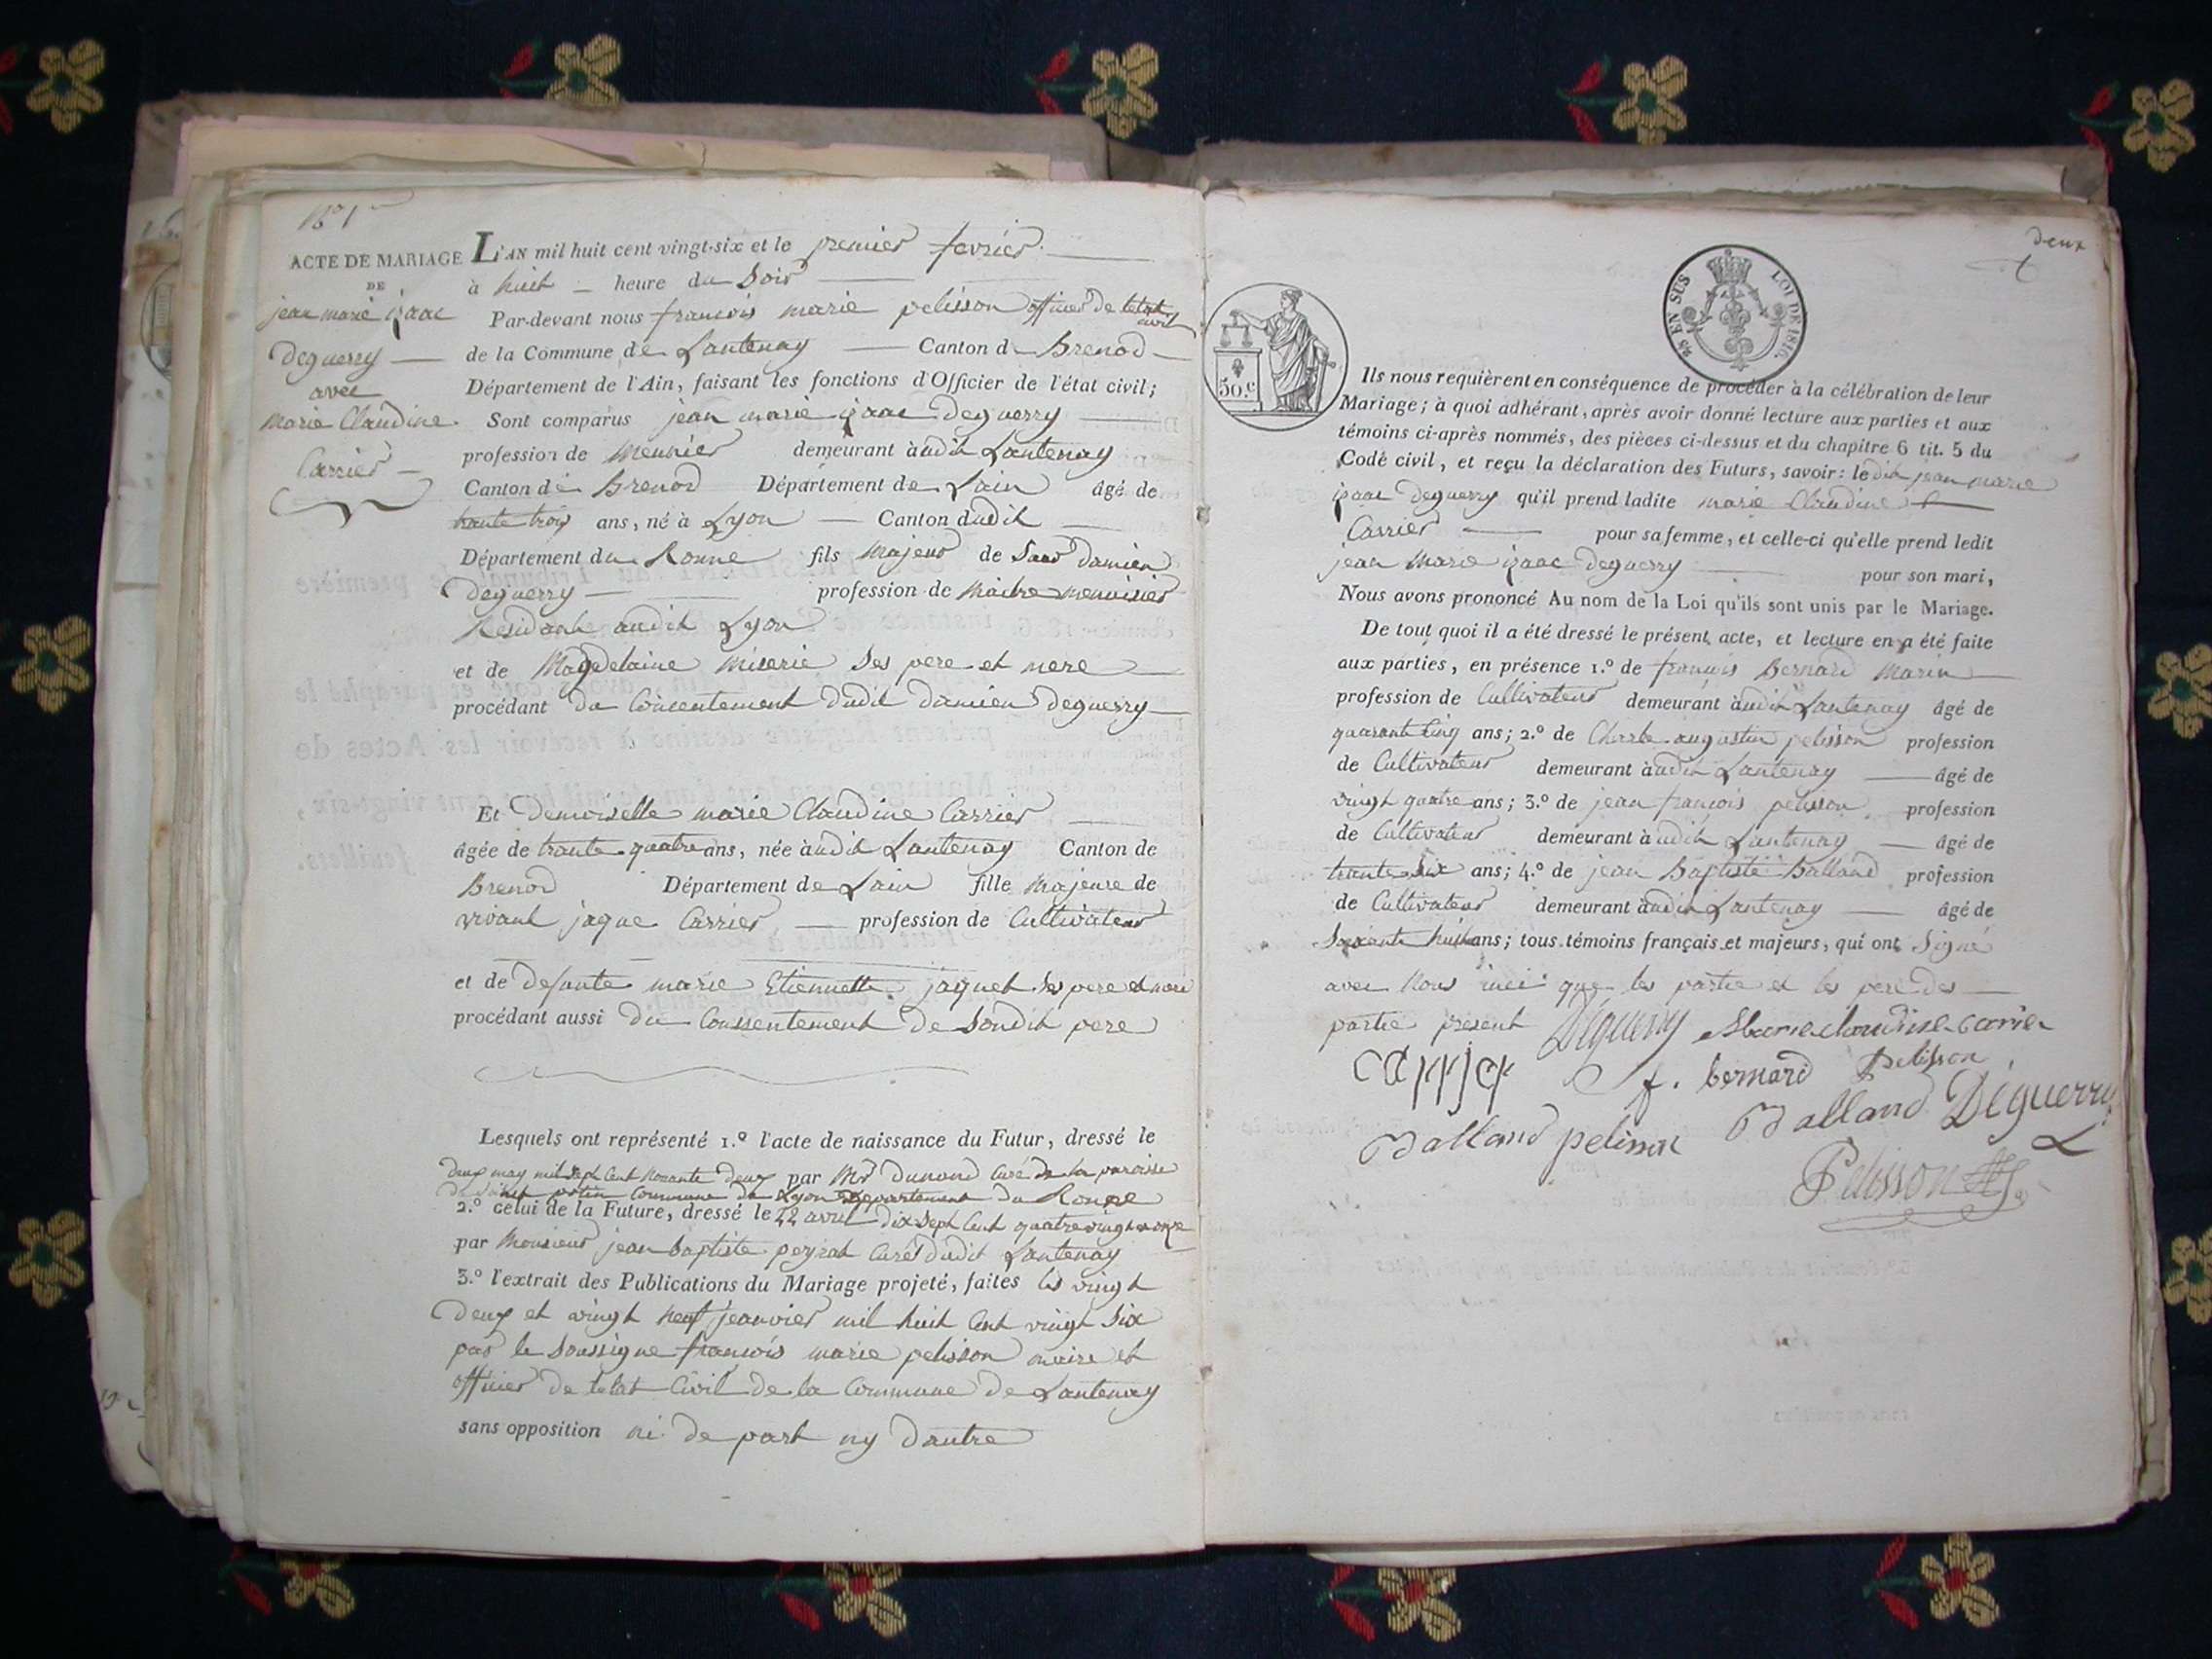 ACTE DE MARIAGE
DE
jean marie izaac
Deguerry
avec
marie Claudine
Carrier
L'AN mil huit cent vingt-six et le premier fevrier
à huit heure du Soir
Par-devant nous francois marie pelisson officier de letat civil
de la Commune de Lantenay Canton de Brenod
Département de l'Ain, faisant les fonctions d'Officier de l'état civil;
Sont comparus jean marie izaac Deguerry
profession de Meunier demeurant audit Lantenay
Canton de Brenod Département de Lain âgé de
trante trois ans, né à Lyon Canton dudit
Département du Ronne fils Majeur de Damien
Deguerry profession de Maitre menuisier
Residant audit Lyon
et de Magdelaine miserie Ses pere et mere
procédant du Consentement Dudit Damien Deguerry
Et Demoiselle marie Claudine Carrier
âgée de trante quatre ans, née audit Lantenay Canton de
Brenod Département de Lain fille Majeure de
vivant jaque Carrier profession de Cultivateur
et de Defunte marie Etiennette jaquet Ses pere et mere
procédant aussi du Conssentement de Sondit pere
Lesquels ont représenté 1.º l'acte de naissance du Futur, dressé le
Deux may mil Sept Cent Nonante Deux par Mr Dunand Curé de la paroisse
Commune de Lyon Departement du Ronne
2.º celui de la Future, dressé le 22 avril Dix Sept Cent quatrevingt onze
par Monsieur jean baptiste peyrat Curé dudit Lantenay
3.º l'extrait des Publications du Mariage projeté, faites les vingt
Deux et vingt neuf jeanvier mil huit Cent vingt Six
par le Soussigne francois marie pelisson maire et
officier de letat Civil de la Commune de Lantenay
sans opposition ni de part ny Dautre
deux
25 EN SUS LOI DE 1816.
50.c
Ils nous requièrent en conséquence de procéder à la célébration de leur
Mariage; à quoi adhérant, après avoir donné lecture aux parties et aux
témoins ci-après nommés, des pièces ci-dessus et du chapitre 6 tit. 5 du
Code civil, et reçu la déclaration des Futurs, savoir: ledit jean marie
izaac Deguerry qu'il prend ladite marie Claudine
Carrier pour sa femme, et celle-ci qu'elle prend ledit
jean Marie izaac Deguerry pour son mari,
Nous avons prononcé Au nom de la Loi qu'ils sont unis par le Mariage.
De tout quoi il a été dressé le présent acte, et lecture en a été faite
aux parties, en présence 1.º de francois Bernard Marin
profession de Cultivateur demeurant audit Lantenay âgé de
quarante Cinq ans; 2.º de Charle augustin pelisson profession
de Cultivateur demeurant audit Lantenay âgé de
vingt quatre ans; 3.º de jean francois pelisson profession
de Cultivateur demeurant audit Lantenay âgé de
trante Six ans; 4.º de jean Baptiste Balland profession
de Cultivateur demeurant audit Lantenay âgé de
Soixante huit ans; tous témoins français et majeurs, qui ont Signé
avec Nous que les partie et les pere des
partie present Déguerry Marie claudine carier
f. bernard Pelisson
Balland pelisson Balland Déguerry
Pelisson